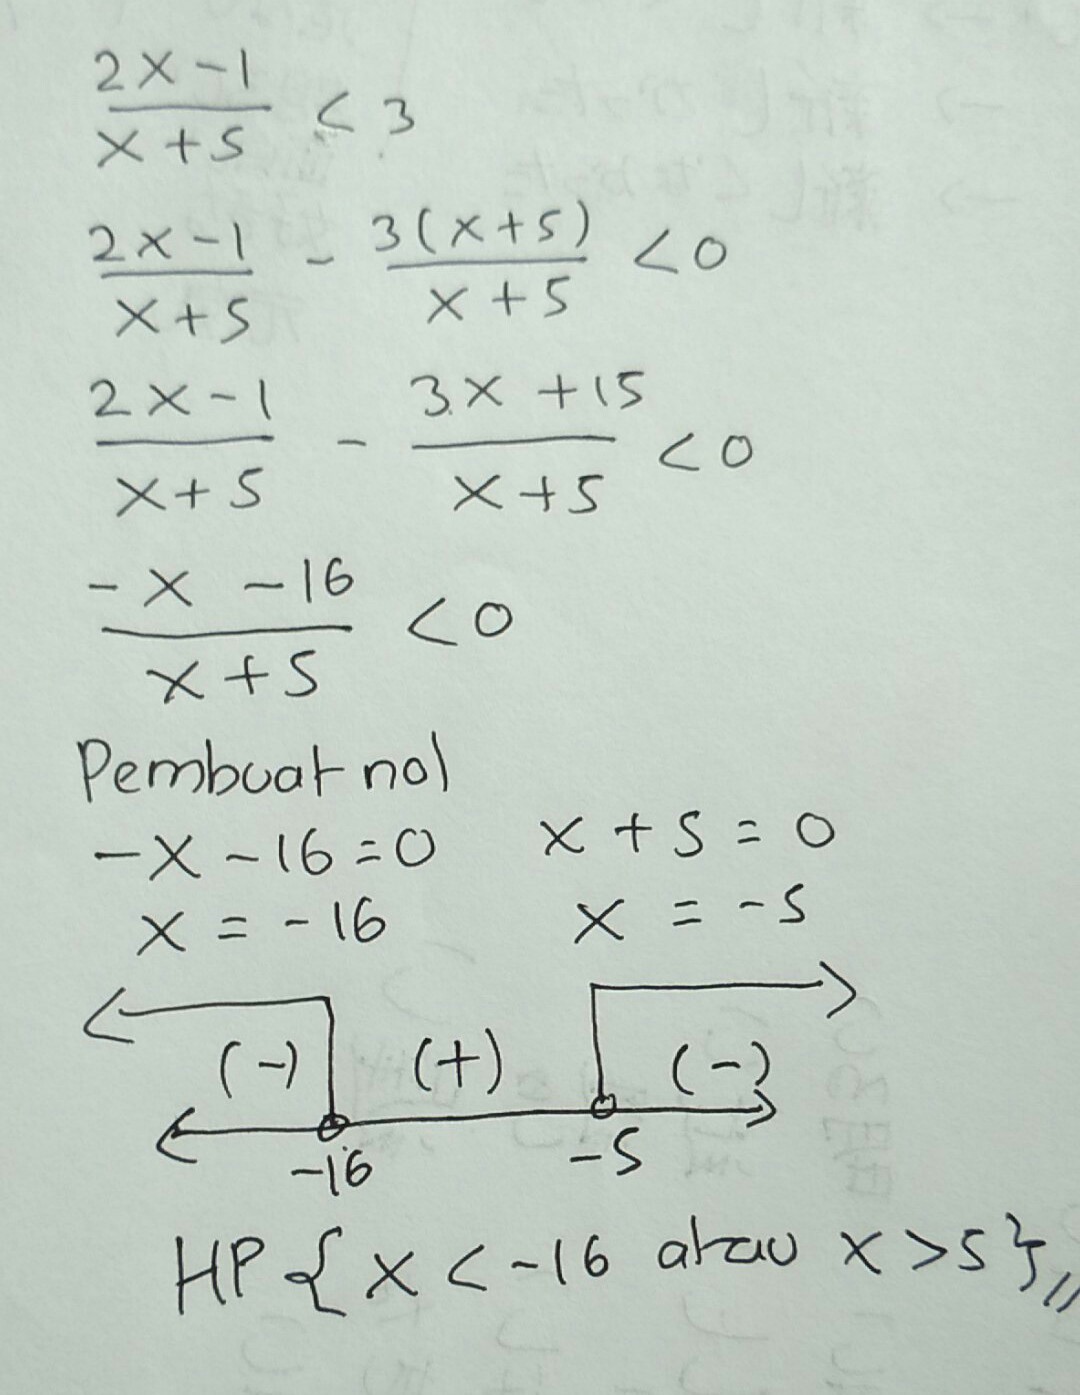 2x-1/x+5 < 3
2x-1/x+5 - 3(x+5)/x+5 < 0
2x-1/x+5 - 3x+15/x+5 < 0
-x-16/x+5 < 0
Pembuat nol
-x-16=0 x+5=0
x=-16 x=-5
(-) (+) (-)
-16 -5
HP { x < -16 atau x > 5 },,